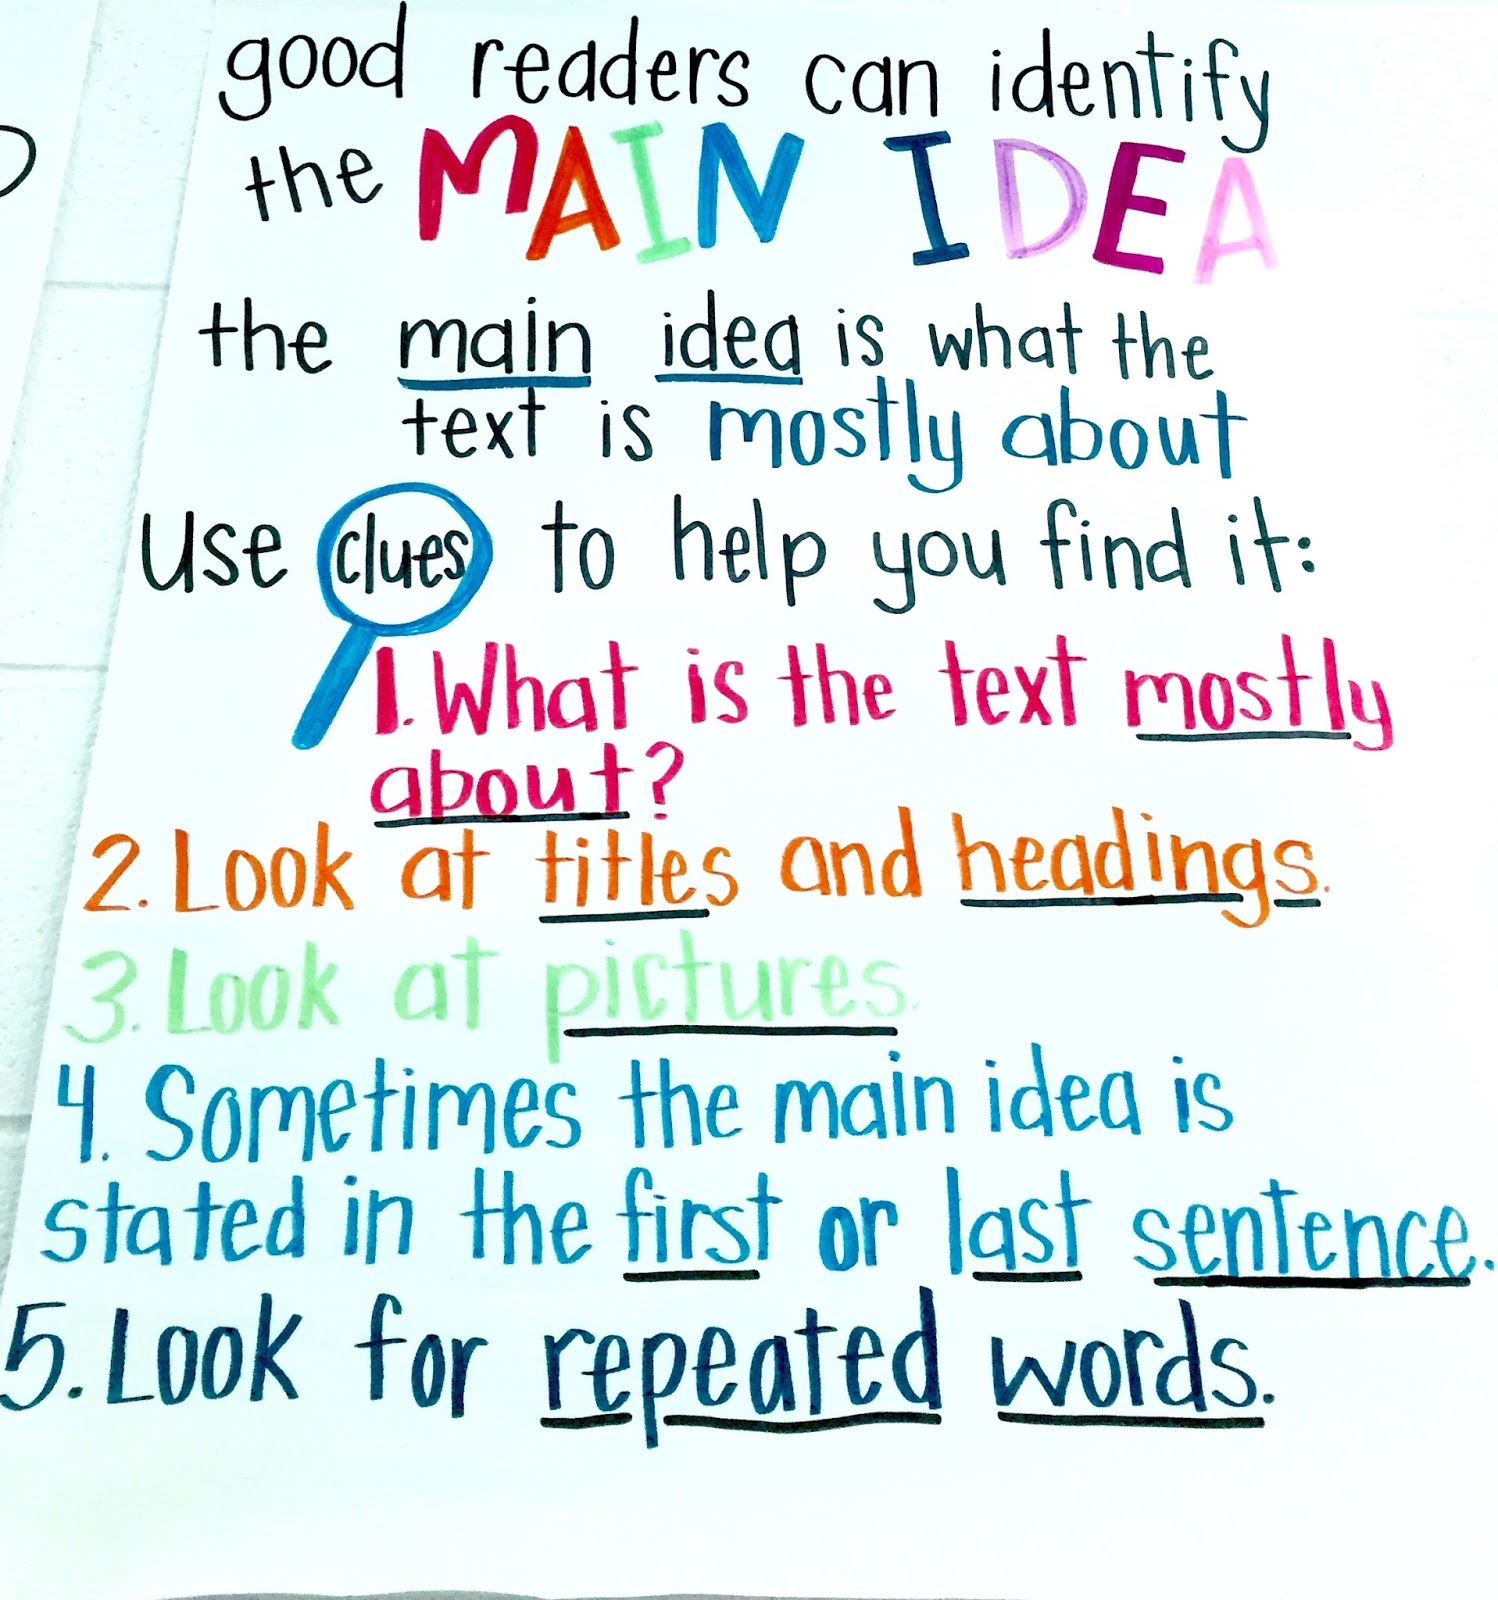 good readers can identify
the MAIN IDEA
the main idea is what the
text is mostly about
use clues to help you find it:
1. What is the text mostly
about?
2. Look at titles and headings.
3. Look at pictures.
4. Sometimes the main idea is
stated in the first or last sentence.
5. Look for repeated words.